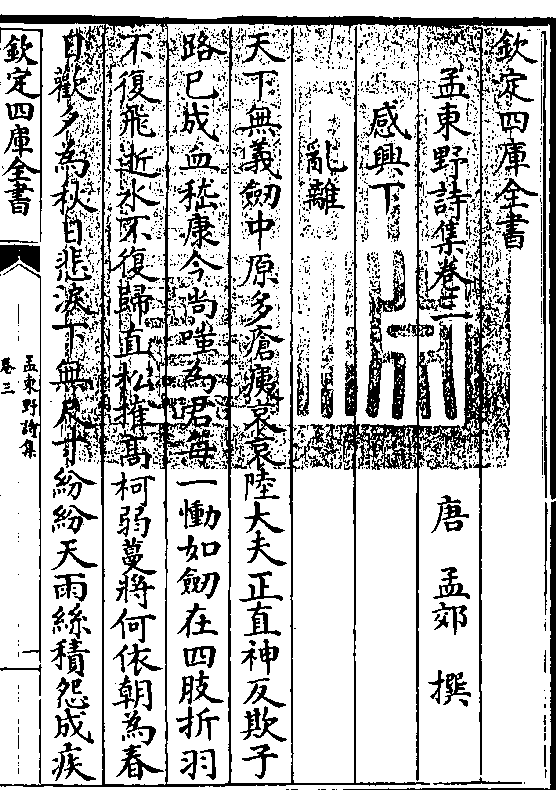 欽定四庫全書
孟東野詩集卷三
唐 孟郊 撰
感興下
亂離
天下無義劒中原多瘡痍哀哀陸大夫正直神反欺子
路已成血嵇康今尚嗤為君每一慟如劒在四肢折羽
不復飛逝水不復歸直松摧高柯弱蔓將何依朝為春
日歡夕為秋日悲淚下無尺寸紛紛天雨絲積怨成疾
欽定四庫全書
孟東野詩集
卷三
一